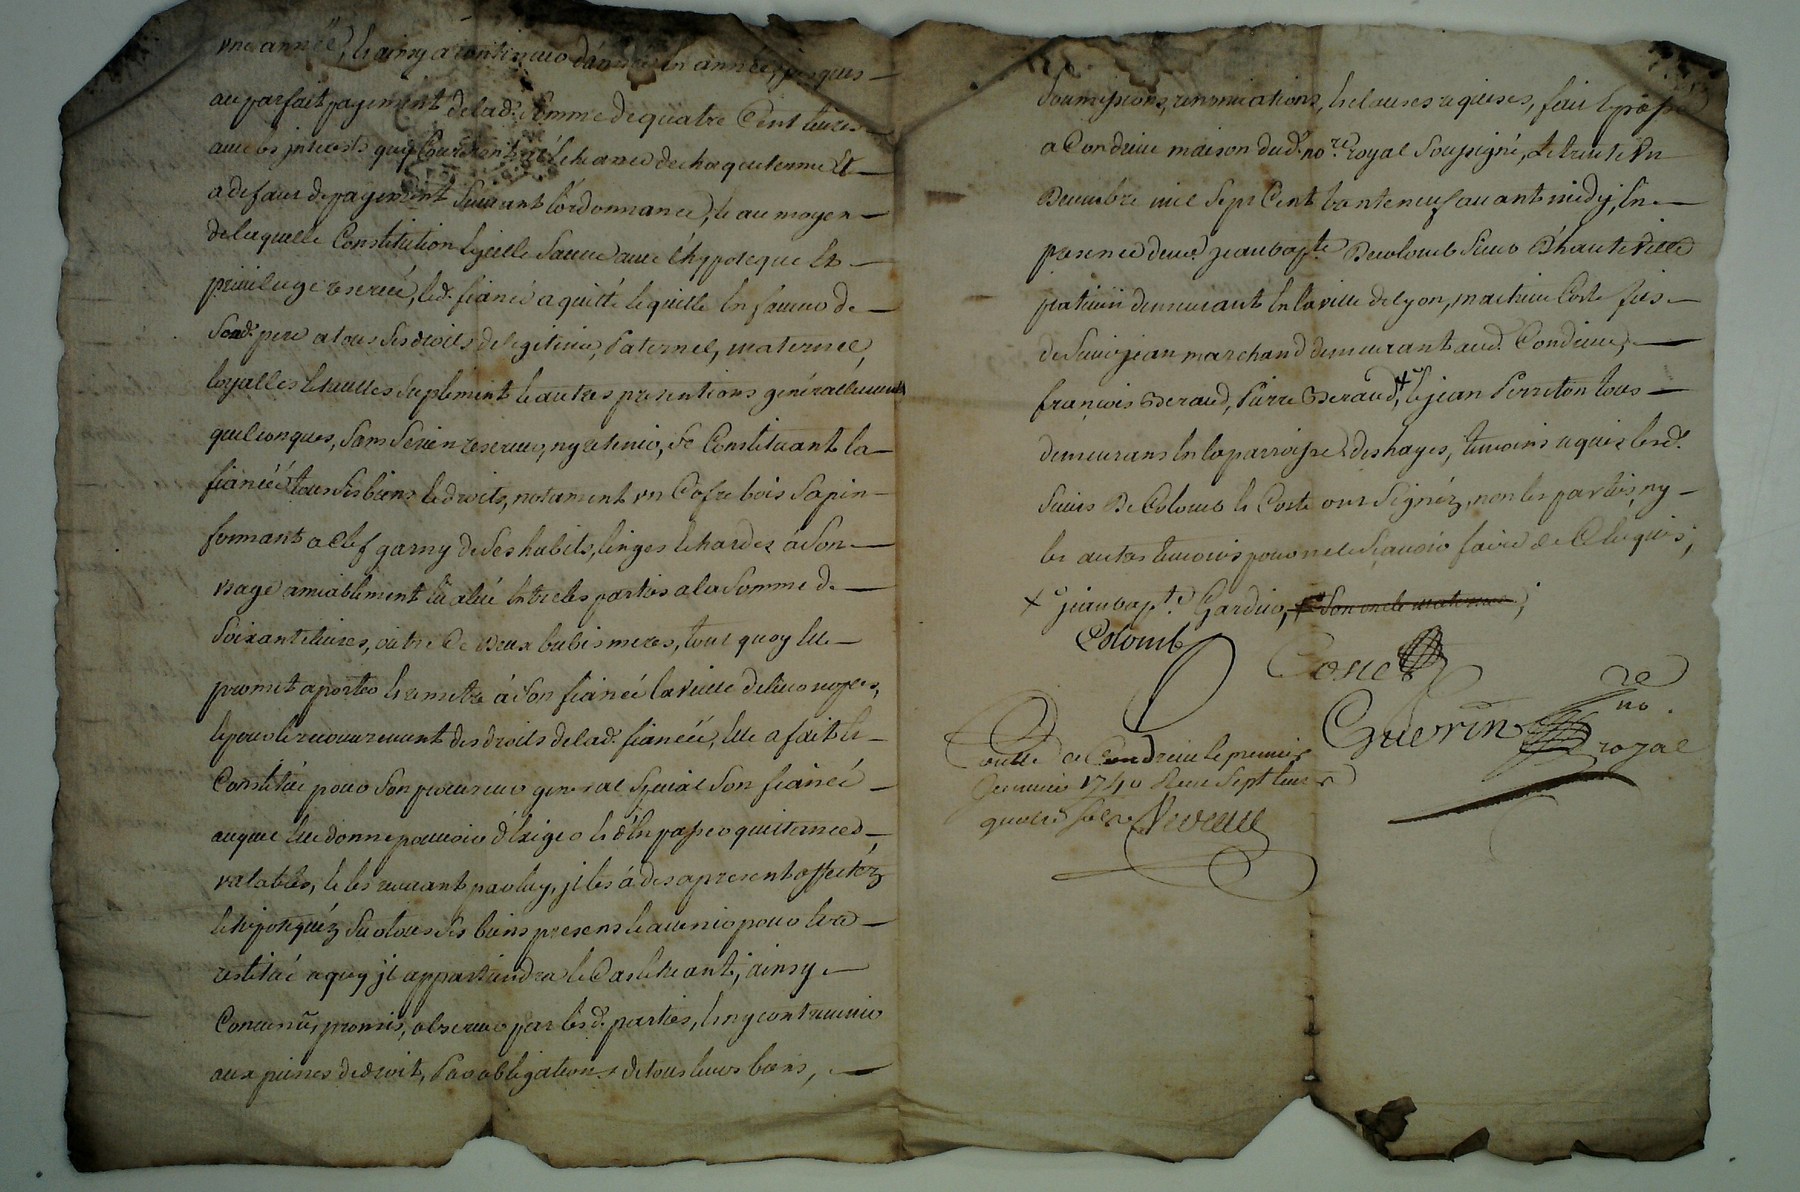 une année, & ainsy a continuer d'année en année, jusques
au parfait payement de lad. somme de quatre cent livres
avec les interests qui courront a l'echeance de chaque terme &
a defaut de payement suivant l'ordonnance, & au moyen
de laquelle Constitution & jcelle sauve avec l'hypoteque &
privilege reservé, led. fiancé a quitté & quitte en faveur de
sond. pere a tous ses droits de legitime, paternel, maternel,
loyalles echutes suplement & autres pretentions generallement
quelconques, sans se rien reserver, ny retenir, se Constituant la
fiancée tous ses biens & droits, notament un Cofre bois sapin
fermant a clef garny de ses habits, linges & hardes à son
usage amiablement évalué entre les parties a la somme de
soixante livres, outre ce deux brebis meres, tout quoy elle
promet aporter & remettre à son fiancé la veille de leurs noces,
& pour le recouvrement des droits de lad. fiancée, elle a fait &
Constitué pour son procureur general special son fiancé
auquel elle donne pouvoir d'exiger & d'en passer quittances
valables, & les recevant par luy, jl les à des a present affectéz
& hipotequéz sur tous ses biens presens & avenir pour être
restitué a quy jl appartiendra le Cas écheant, ainsy
Convenu, promis, observer par lesd. parties, & n'y contrevenir
aux peines de droit, par obligation de tous leurs biens,
soumissions, renonciations, & clauses requises, fait & passé
a Condrieu maison dud. nore. royal soussigné, le trente un
Decembre mil sept cent trente neuf avant midy, en
presence de sr. jean bapte. De colomb sieur D'hauteville
praticien demeurant en la ville de lyon, mathieu Coste fils
de sieur jean marchand demeurant aud. Condrieu,
françois Beraud, Pierre Beraud, + & jean Perreton tous
demeurans en la parroisse des hayes, temoins requis lesd.
sieurs De Colomb & Coste ont signéz, non les parties, ny
les autres temoins pour ne le sçavoir faire de Ce requis,
+ & jean bapte. Gardier, & son oncle maternel,
Colomb
Coste
Guerin
no. re
royal
Controllé a Condrieu le premier
Janvier 1740 Receu sept livres
quatre sols